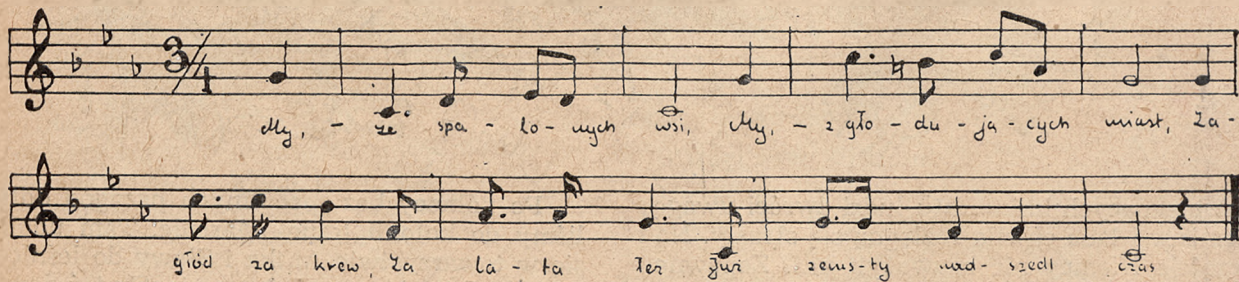 3/4
My, - ze spa - lo - nych wsi, My, - z gło - du - ja - cych miast, Za -
głód za krew, Za la - ta łez Już zems - ty nad - szedł czas